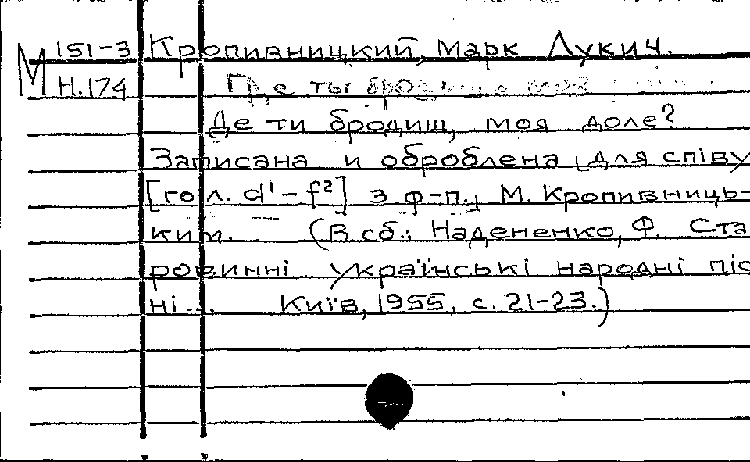 М 151-3 Кропивницкий, Марк Лукич.
Н.174 Где ты
Де ти бродиш, моя доле?
Записана и оброблена [для співу
[гол. d¹-f²] з ф-п., М. Кропивниць-
ким. (В сб.: Надененко, Ф. Ста
ровинні українські народні піс
ні... Київ, 1955, с. 21-23.)